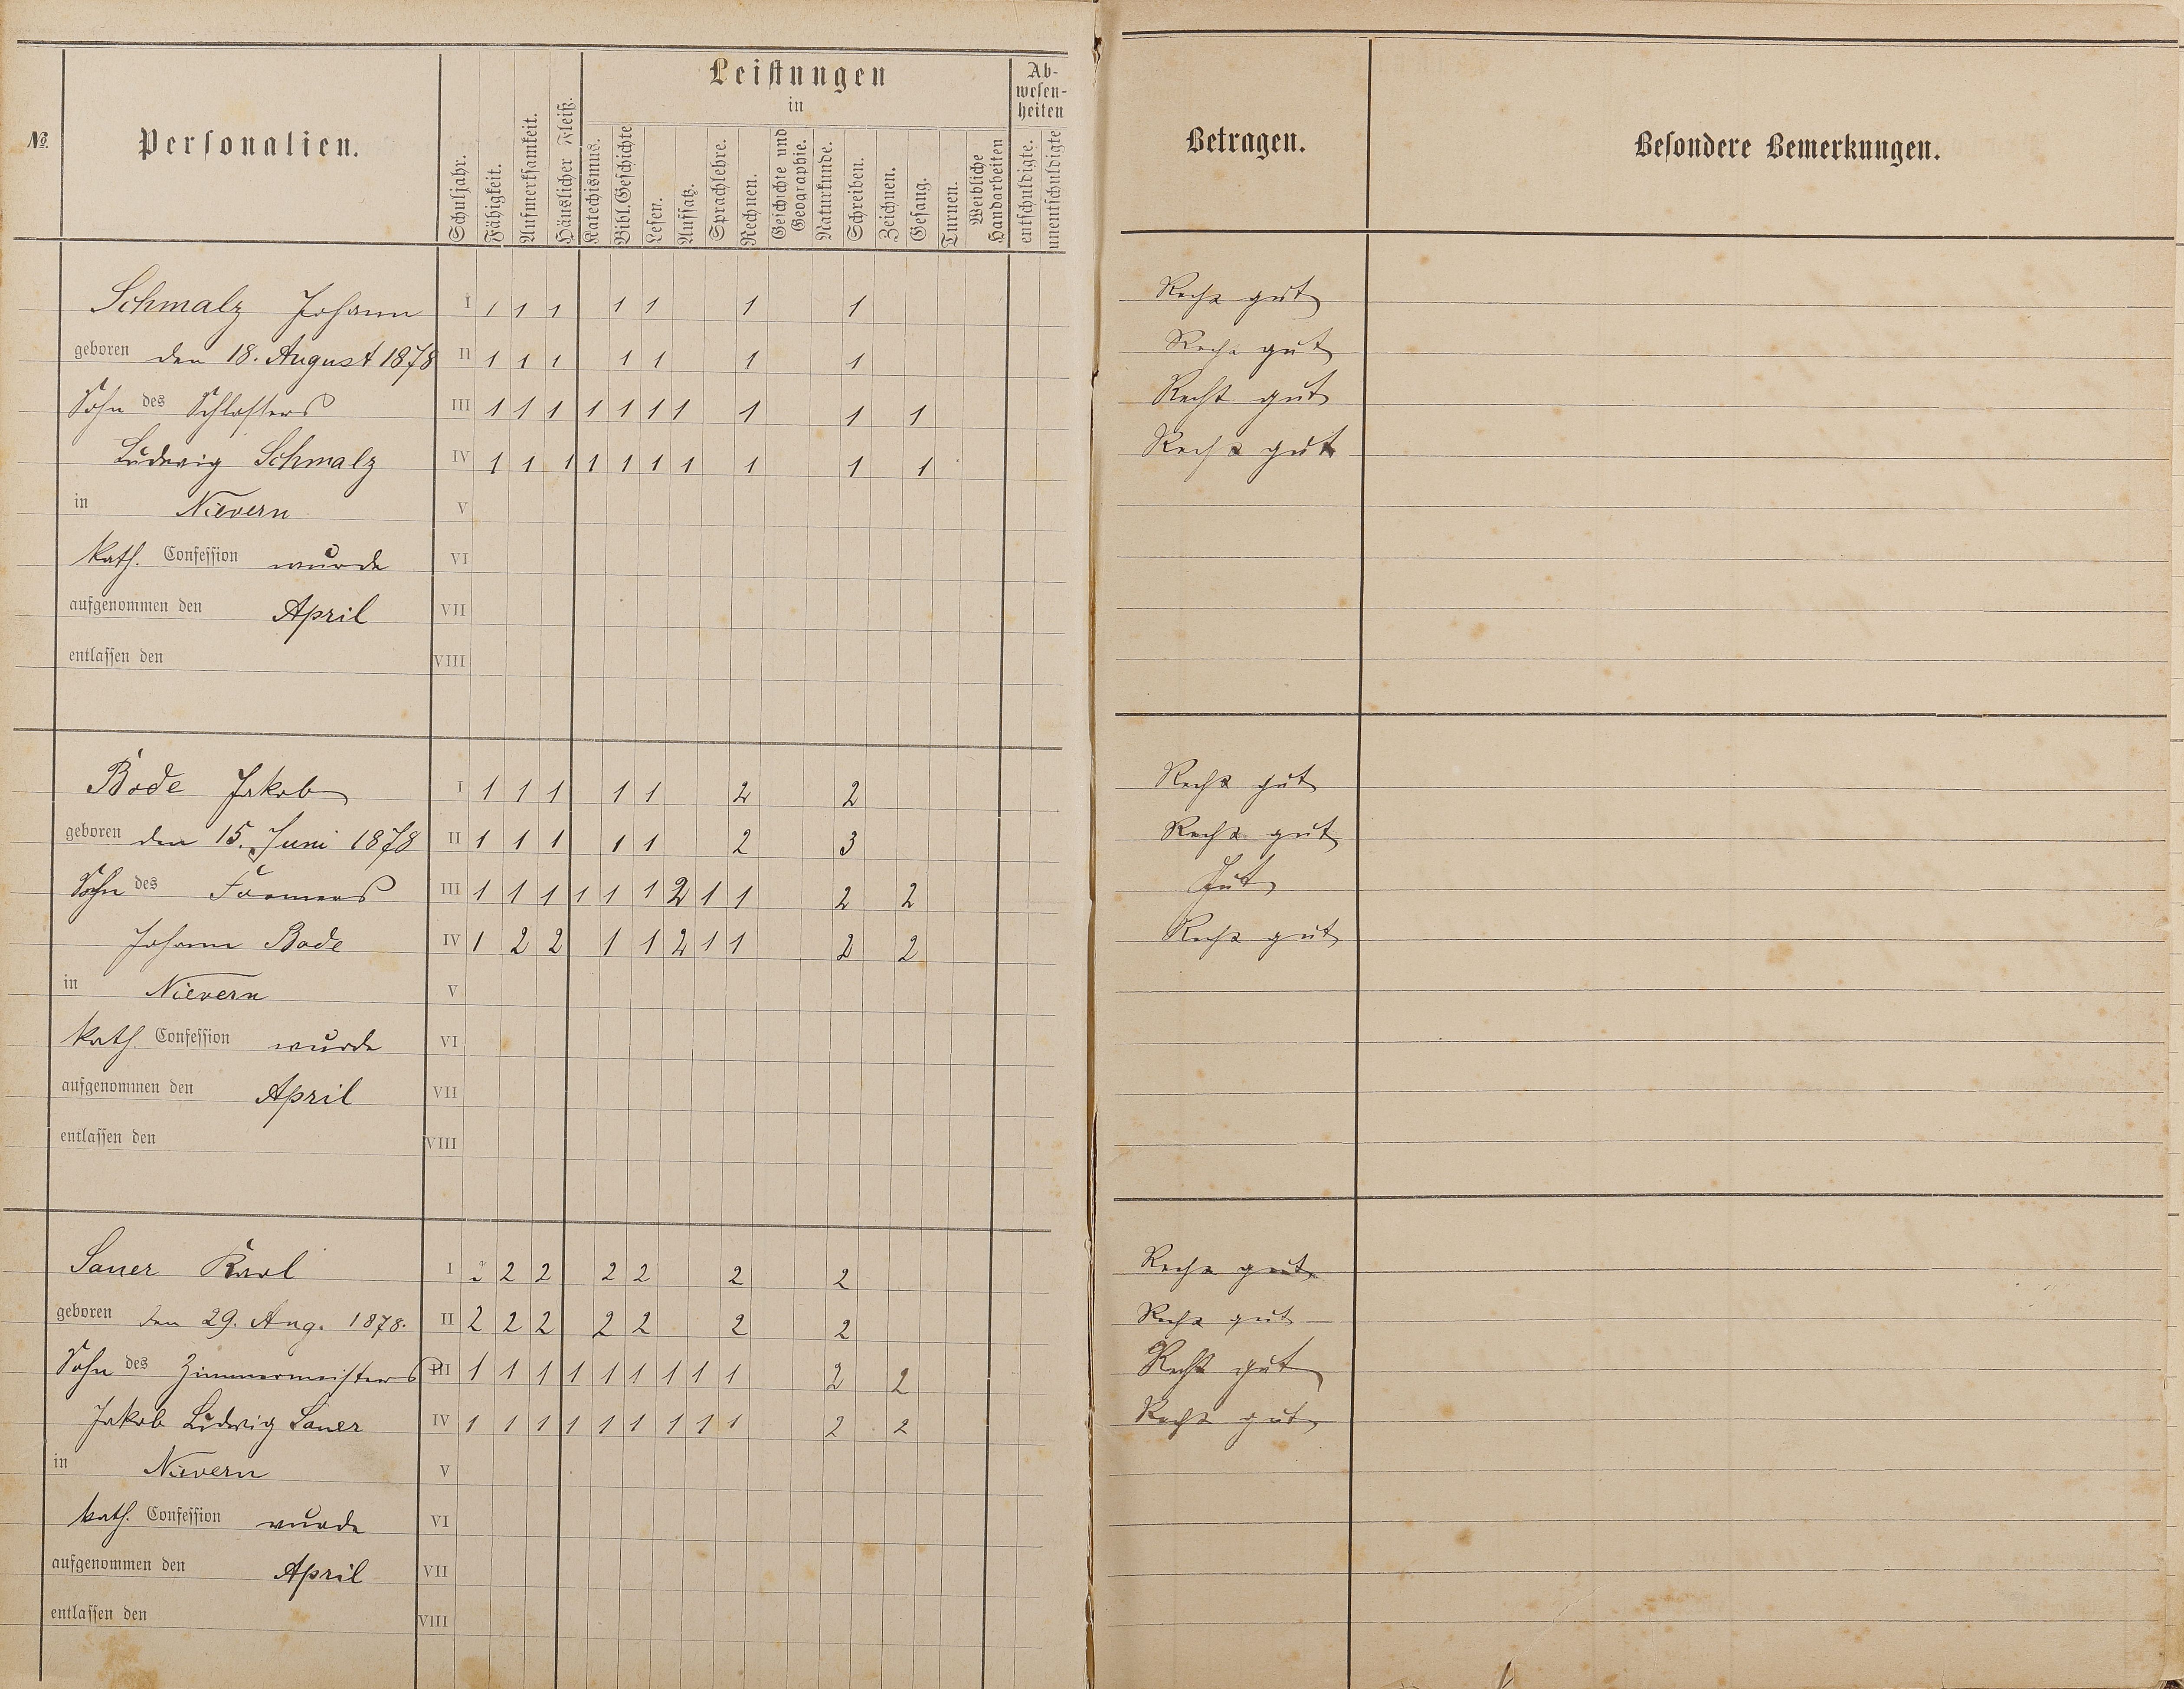 Leistungen
in
Ab-
wesen-
heiten
№
Personalien.
Schuljahr.
Fähigkeit.
Aufmerksamkeit.
Häuslicher Fleiß.
Katechismus.
Bibl. Geschichte
Lesen.
Aufsatz.
Sprachlehre.
Rechnen.
Geschichte und
Geographie.
Naturkunde.
Schreiben.
Zeichnen.
Gesang.
Turnen.
Weibliche
Handarbeiten
entschuldigte.
unentschuldigte
Betragen.
Besondere Bemerkungen.
Schmalz Johann I 1 1 1 1 1 1 1 Recht gut
geboren den 18. August 1878 II 1 1 1 1 1 1 1 Recht gut
Sohn des Schlossers III 1 1 1 1 1 1 1 1 1 1 Recht gut
Ludwig Schmalz IV 1 1 1 1 1 1 1 1 1 1 Recht gut
in Nievern V
kath. Confession wurde VI
aufgenommen den April VII
entlassen den VIII
Bode Jakob I 1 1 1 1 1 2 2 Recht gut
geboren den 15. Juni 1878 II 1 1 1 1 1 2 3 Recht gut
Sohn des Formers III 1 1 1 1 1 1 2 1 1 2 2 Gut
Johann Bode IV 1 2 2 1 1 2 1 1 2 2 Recht gut
in Nievern V
kath. Confession wurde VI
aufgenommen den April VII
entlassen den VIII
Sauer Karl I 2 2 2 2 2 2 2 Recht gut
geboren den 29. Aug. 1878. II 2 2 2 2 2 2 2 Recht gut
Sohn des Zimmermeisters III 1 1 1 1 1 1 1 1 1 2 2 Recht gut
Jakob Ludwig Sauer IV 1 1 1 1 1 1 1 1 1 2 2 Recht gut
in Nievern V
kath. Confession wurde VI
aufgenommen den April VII
entlassen den VIII